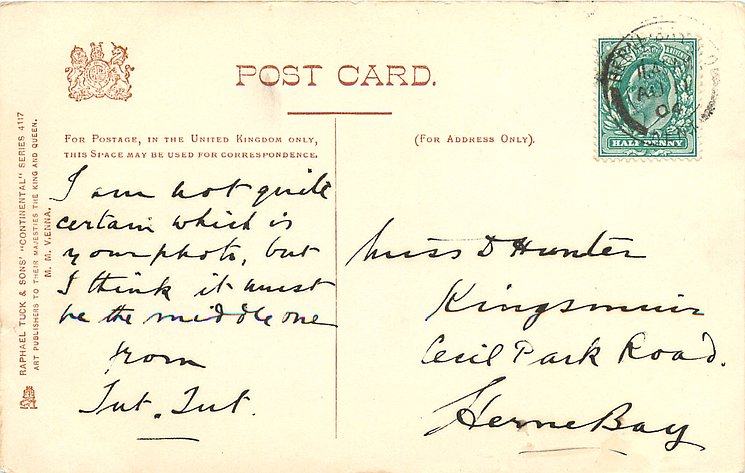 POST CARD.
FOR POSTAGE, IN THE UNITED KINGDOM ONLY,
THIS SPACE MAY BE USED FOR CORRESPONDENCE.
(FOR ADDRESS ONLY).
HALF PENNY
RAPHAEL TUCK & SONS' "CONTINENTAL" SERIES 4117
ART PUBLISHERS TO THEIR MAJESTIES THE KING AND QUEEN.
M. M. VIENNA.
I am not quite
certain which is
your photo, but
I think it must
be the middle one
from
Tut. Tut.
Miss D Hunter
Kingsmuir
Cecil Park Road.
Herne Bay